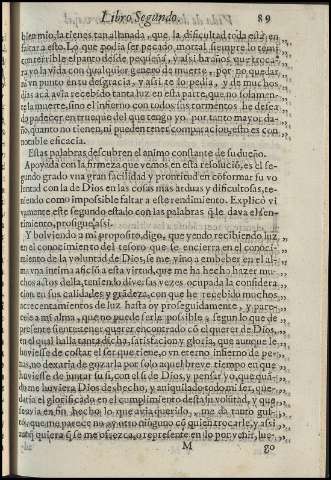 Libro Segundo. 89
bien mio, la tienes tan allanada, que la dificultad toda està en
faltar a esto. Lo que podia ser pecado mortal siempre lo temi
con terrible espanto desde pequeña, y assi ha años que troca-
ra yo la vida con qualquier genero de muerte, por no quedar
ni vn punto en tu desgracia, y assi te lo pedia, y de muchos
dias acà, avia recebido tanta luz en esta parte, que no solamen-
te la muerte, sino el infierno con todos sus tormentos he desea
do padecer en trueque del que tengo yo por tanto mayor da-
ño, quanto no tienen, ni pueden tener comparacion, esto es con
notable eficacia.
Estas palabras descubren el animo constante de su dueño.
Apoyada con la firmeza que vemos en esta resolució, es el se-
gundo grado vna gran facilidad y prontitud en cōformar su vo
luntad con la de Dios en las cosas mas arduas y dificultosas, te-
niendo como impossible faltar a este rendimiento. Explicó vi
vamente este segundo estado con las palabras q̃ le dava el sen-
timiento, prosigue assi.
Y bolviendo a mi proposito, digo, que yendo recibiendo luz
en el conocimiento del tesoro que se encierra en el conoci-
miento de la voluntad de Dios, se me vino a embeber en el al-
ma vna intima aficiō a esta virtud, que me ha hecho hazer mu-
chos actos della, teniendo diversas vezes ocupada la considera
cion en sus calidades y grādeza, con que he recebido muchos
acrecentamientos de luz hasta oy proseguidamente, y pare-
cele a mi alma, que no puede serle possible a segun lo que de
presente siente tener querer encontrado cō el querer de Dios,
en el qual halla tanta dicha, satisfacion y gloria, que aunque le
huviesse de costar el ser que tiene, o vn eterno infierno de pe-
nas, no dexaria de gozarla por solo aquel breve tiempo en que
huviesse de juntar su sì, con el sì de Dios, y pensar yo, que quā-
do me huviera Dios deshecho, y aniquilado todo mi ser, que-
daria el glorificado en el cumplimiento desta su volūtad, y que
se avia en fin hecho lo que avia querido, me da tanto gus-
to, que me parece no ay otro ninguno cō quien trocarle, y assi
en qualquiera q̃ se me ofrezca, o represente en lo por venir, lue-
M go